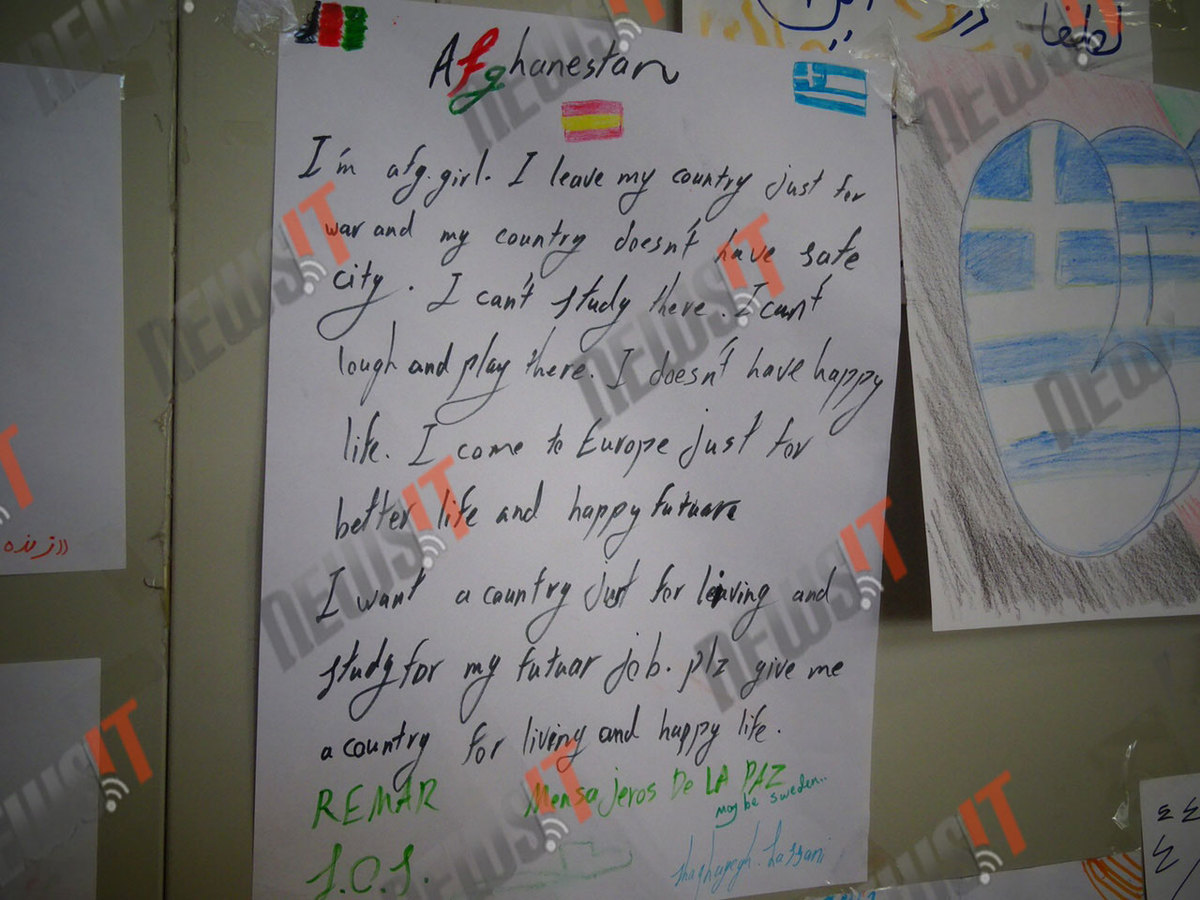 Afghanestan
I'm afg.girl. I leave my country just for
war and my country doesn't have safe
city. I can't study there. I can't
lough and play there. I doesn't have happy
life. I come to Europe just for
better life and happy futuare
I want a country just for leiving and
study for my futuar job. plz give me
a country for living and happy life.
REMAR Mensajeros De LA PAZ
may be sweden..
S.O.S.
NEWSIT
NEWSIT
NEWSIT
NEWSIT
NEWSIT
NEWSIT
NEWSIT
NEWSIT
NEWSIT
NEWSIT